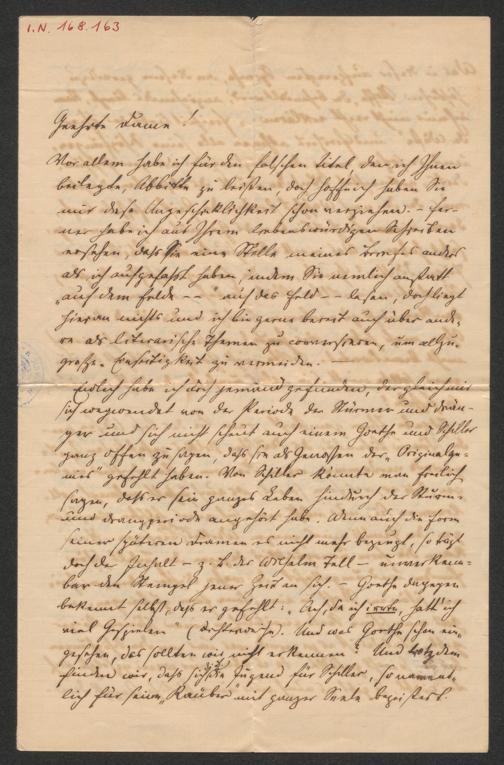 I.N. 168.163
Geehrte Dame!
Vor allem habe ich für den falschen Titel, den ich Ihnen
beilegte, Abbitte zu leisten, doch hoffentlich haben Sie
mir diese Ungeschicklichkeit schon verziehen. – Fer-
ner habe ich aus Ihrem liebenswürdigen Schreiben
ersehen, dass Sie eine Stelle meines Briefes anders
als ich aufgefasst haben, indem Sie nemlich anstatt
„auf dem Felde – –" auf das Feld – – lasen, doch liegt
hieran nichts und ich bin gerne bereit auch über ande-
re als literarische Themen zu conversieren, um allzu-
große Einseitigkeit zu vermeiden. –
Endlich habe ich doch jemand gefunden, der gleich mir
sich wegwendet von der Periode der Stürmer und Drän-
ger und sich nicht scheut auch einem Goethe und Schiller
ganz offen zu sagen, dass sie als Genossen der „Originalge-
nies" gefehlt haben. Von Schiller könnte man freilich
sagen, dass er sein ganzes Leben hindurch der Sturm-
und Drangperiode angehört habe. Wenn auch die Form
seiner späteren Dramen es nicht mehr bezeugt, so trägt
doch der Inhalt – z. B. der Wilhelm Tell – unverkenn-
bar den Stempel jener Zeit an sich. – Goethe dagegen
bekennt selbst, dass er gefehlt: „Ach, da ich irrte, hatt' ich
viel Gespielen" ( ). Und was Goethe schon ein-
gesehen, das sollten wir nicht erkennen? Und trotzdem
finden wir, dass sich die Jugend für Schiller, so nament-
lich für seine „Räuber" mit ganzer Seele begeistert.